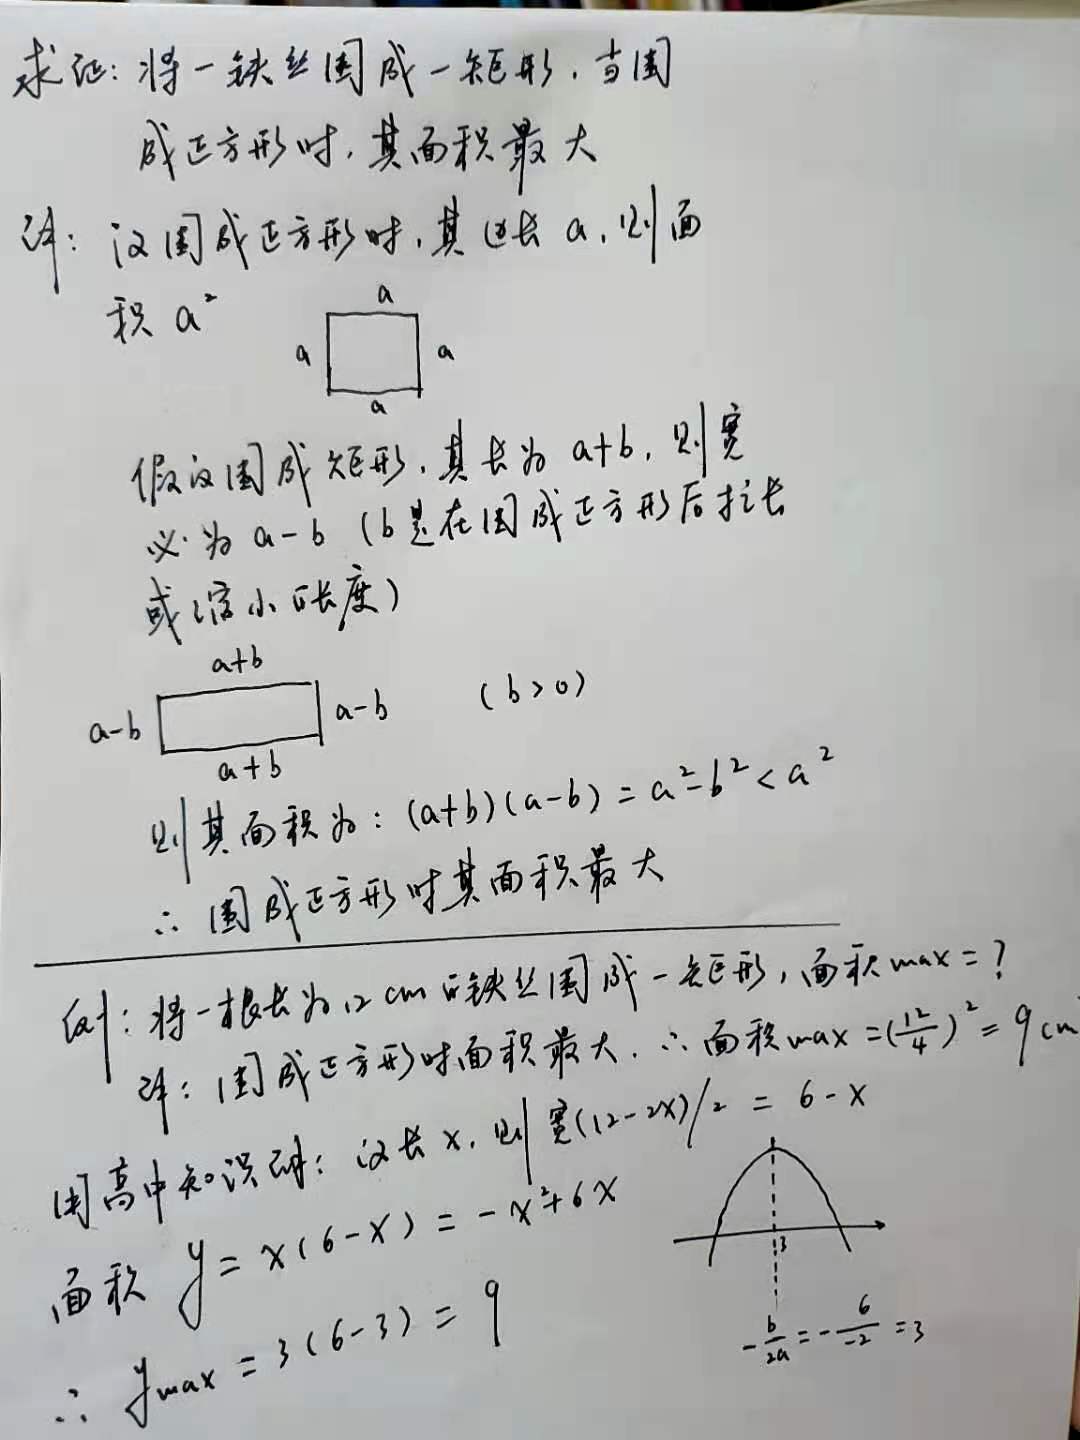 求证：将一铁丝围成一矩形，当围
成正方形时，其面积最大
证：设围成正方形时，其边长a，则面
积a²
a
a a
a
假设围成矩形，其长为a+b，则宽
必为a-b（b是在围成正方形后拉长
或缩小的长度）
a+b
a-b a-b （b>0）
a+b
则其面积为：(a+b)(a-b)=a²-b²<a²
∴围成正方形时其面积最大
例：将一根长为12cm的铁丝围成一矩形，面积max=？
证：围成正方形时面积最大．∴面积max=(12/4)²=9cm
用高中知识证：设长x，则宽(12-2x)/2=6-x
面积y=x(6-x)=-x²+6x
3
∴ymax=3(6-3)=9
-b/2a=-6/-2=3